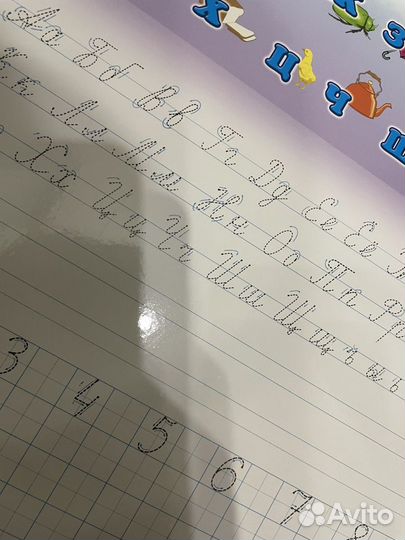 Х К З
Ц Ч Ш
Аа Бб Вв Гг Дд Ее Ёё
Кк Лл Мм Нн Оо Пп Рр
Хх Цц Чч Шш Щщ ъ ы ь
3 4 5 6 7 8
Avito